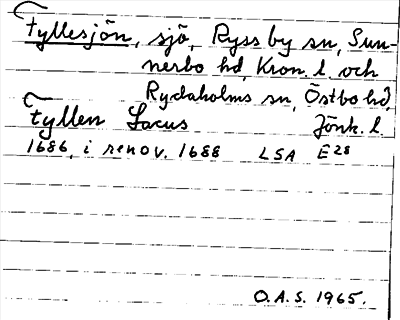 Fyllesjön, sjö, Ryssby sn, Sun-
nerbo hd, Kron. l. och
Rydaholms sn, Östbo hd,
Fyllen Lacus Jönk. l.
1686, i renov. 1688 LSA E28
O.A.S. 1965.